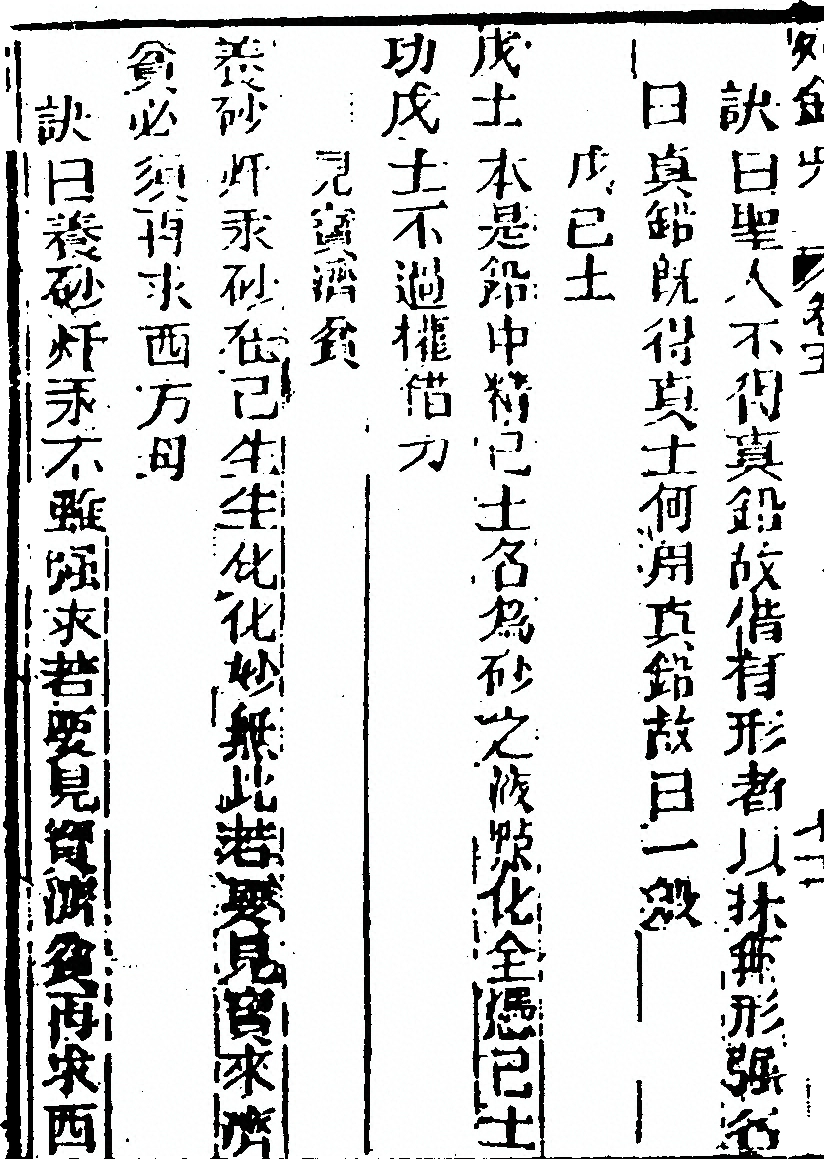 訣曰聖人不得真鉛故借有形者以採無形强名
曰真鉛既得真土何用真鉛故曰一般
戊己土
戊土本是鉛中精己土名為砂之液點化全憑己土
功戊土不過權借力
見寳濟貧
養砂炉汞砂在己生生化化妙無此若要見寳來濟
貧必須再求西方母
訣曰養砂炉汞不難强求若要見寳濟貧再求西